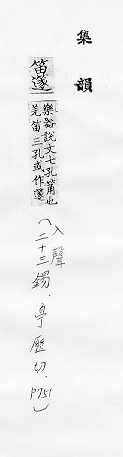 集韻
笛篴
樂器說文七孔筩也
羌笛三孔或作篴
（入聲
二十三錫．亭歷切．P751）